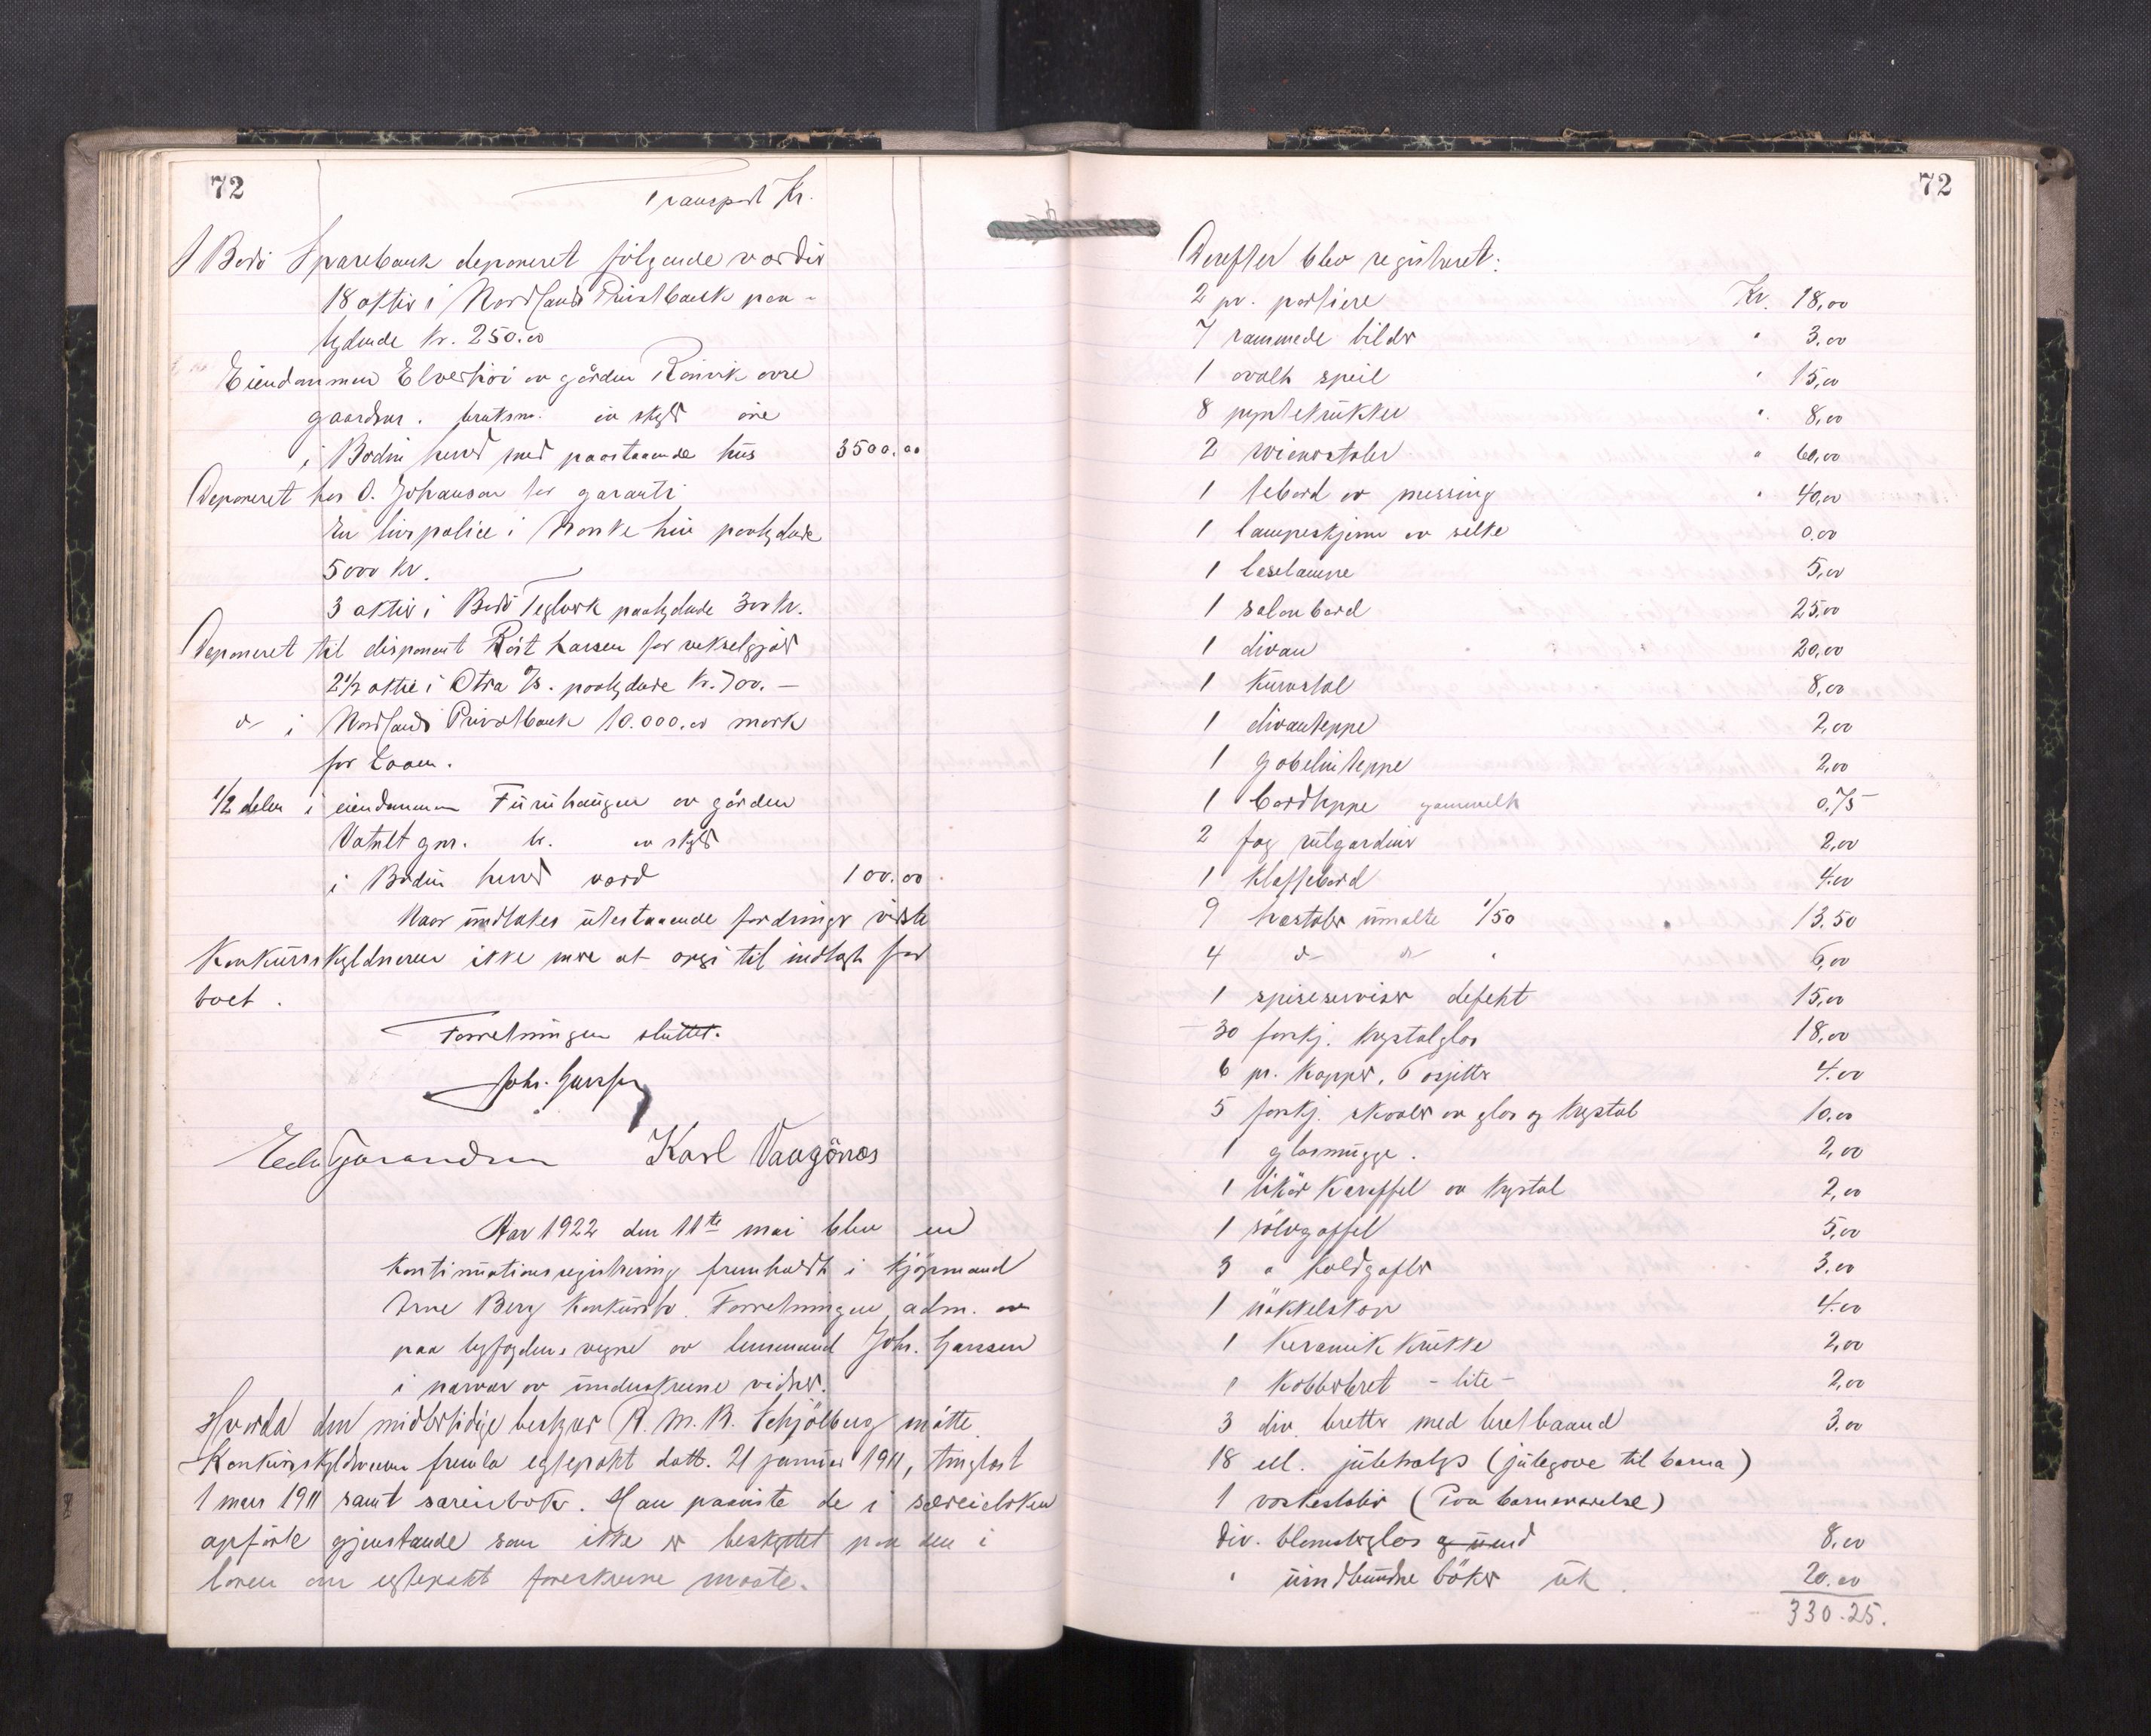 72
Transport Kr.
I Bodö Sparebank deponeret fölgende værdier
18 aktier i Nordlands Privatbank paa-
lydende kr. 250.00
Eiendommen Elverhöi av gården Rönvik övre
gaardsnr. bruksnr. av skyld öre
i Bodin herred med paastaaende hus 3500.00
Deponeret hos O. Johansen for garanti
En livspolice i Norske liv paalydende
5000 kr.
3 aktier i Bodö Teglverk paalydende 300 kr.
Deponeret til disponent Röst Larsen for vekselgjæld
2 1/2 aktie i Otra A/S. paalydende kr. 700.—
do i Nordlands Privatbank 10.000.00 mark
for Laaen.
1/2 delen i eiendommen Furuhaugen av gården
Vatnlt gnr. br. av skyld
i Bodin herred værd 100.00
Naar undtakes utestaaende fordringer visste
Konkursskyldneren ikke mere at opgi til indtægt for
boet.
Forretningen sluttet.
Joh. Hanssen
Karl Vangönes
Aar 1922 den 11te mai blev en
kontinuationsregistrering fremholdt i kjöpmand
Arne Berg konkursbo. Forretningen adm. av
paa byfogdens vegne av lensmand Joh. Hanssen
i nærvær av underskrevne vidner.
Hvorda den midlertidige bestyrer R. M. B. Schjölberg mötte.
Konkursskyldneren fremla egtepakt datt. 21 januar 1911, tinglæst
1 mars 1911 samt særeiebok. Han paaviste de i særeieboken
opförte gjenstande som ikke er beskyttet paa den i
loven om egtepakt foreskrevne maate.
72
Derefter blev registreret:
2 pr. portiere Kr. 18,00
7 rammede bilder " 3.00
1 ovalt speil " 15,00
8 pyntekrukker " 8,00
2 wienerstoler " 60,00
1 tebord av messing " 40,00
1 lampeskjerm av silke 0.00
1 læselampe 5,00
1 salonbord 25.00
1 divan 20,00
1 kurvstol 8,00
1 divanteppe 2,00
1 gobelinteppe 2,00
1 bordteppe gammelt 0.75
2 fag rulgardiner 2,00
1 klaffebord 4.00
9 træstoler umalte 1/50 13.50
4 do do " 6,00
1 spiseserviser defekt 15,00
30 forskj. krystalglas 18,00
6 pr. kopper, 6 asjetter 4.00
5 forskj. skaaler av glas og krystal 10.00
1 glasmugge. 2,00
1 likör karaffel av krystal 2,00
1 sölvgaffel 5,00
3 " koldgafler 3.00
1 nökkelskap 4.00
1 keramik krukke 2,00
1 kobberbret - lite - 2,00
3 div. bretter med bretbaand 3.00
18 ell. (julegave til barna)
1 (Paa barneværelse)
div. blomsterglas 8.00
" uindbundne böker 20.00
330.25.